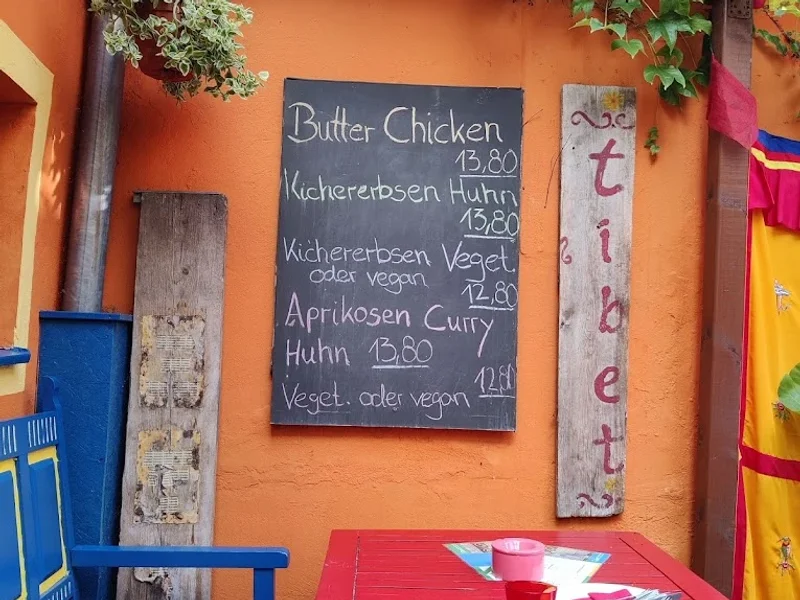 Butter Chicken
13,80
Kichererbsen Huhn
13,80
Kichererbsen Veget.
oder vegan
12,80
Aprikosen Curry
Huhn 13,80
12,80
Veget. oder vegan
tibet